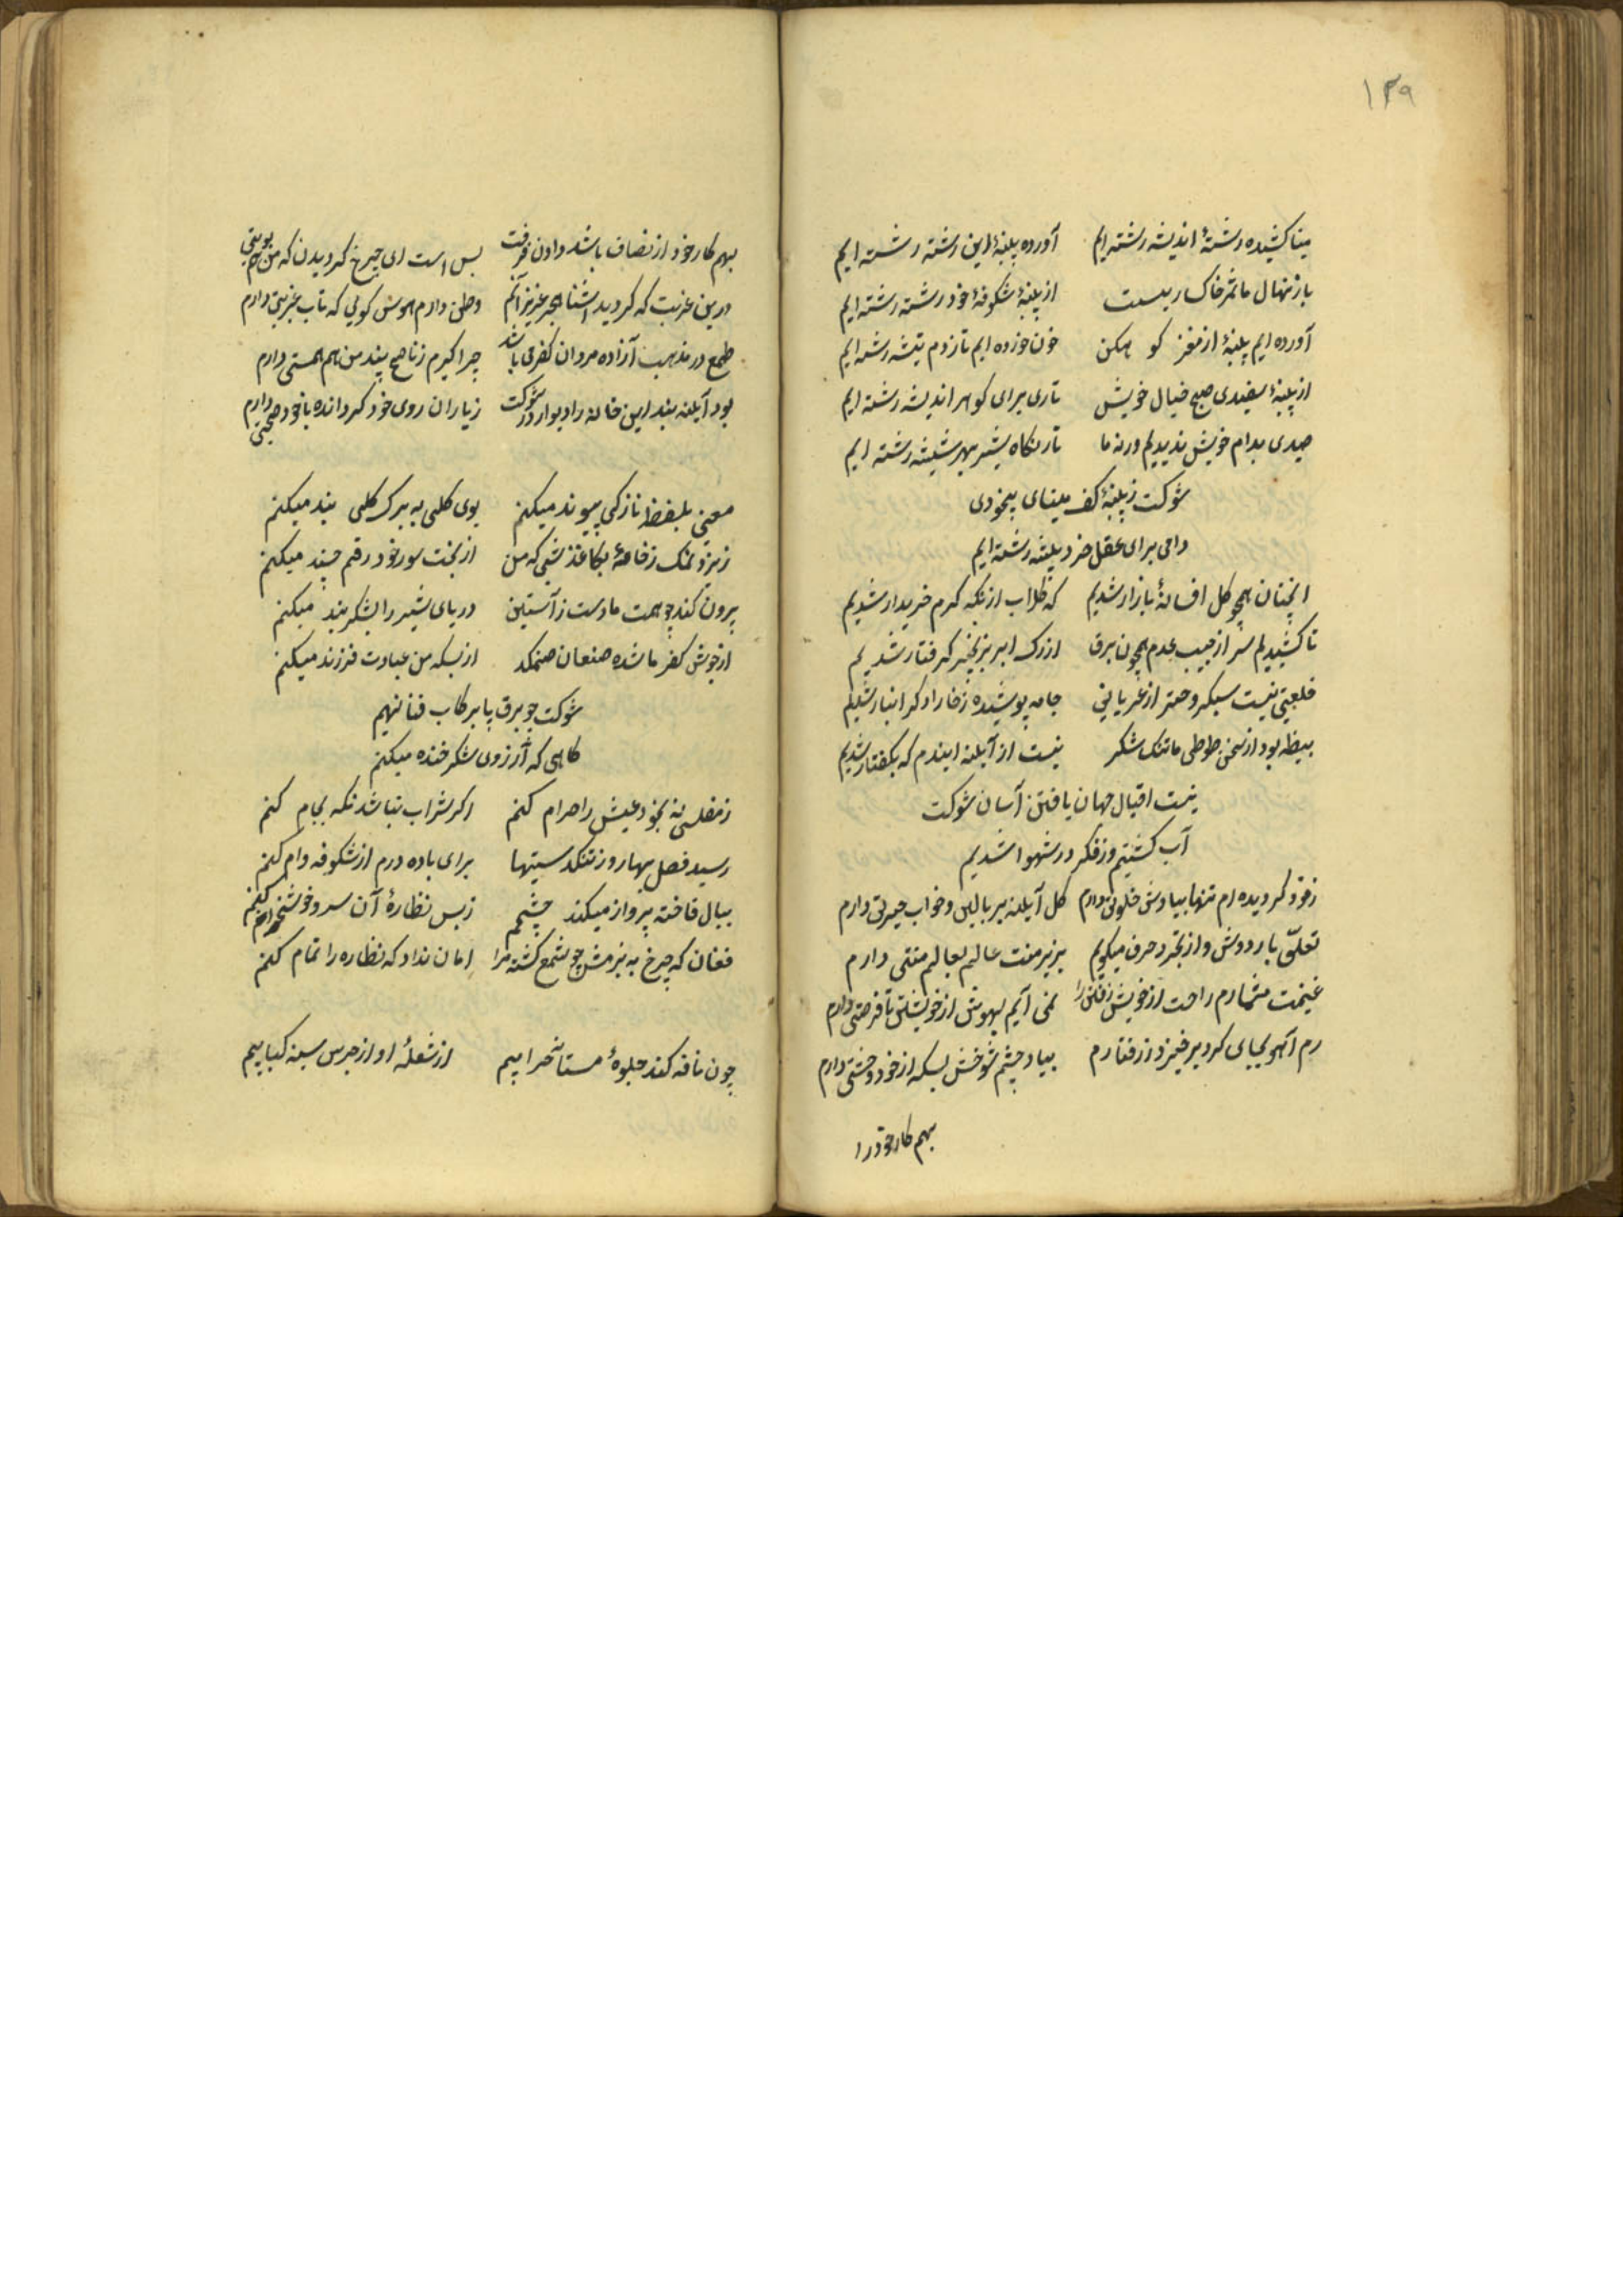 ۱۳۹
مینا کشیده رشتهٔ اندیشه رشته‌ایم آورده پنبهٔ این رشته رشته ایم
بار نهال ما ثمر خاکساریست از پنبهٔ شکوفهٔ خود رشته رشته‌ایم
آورده ایم پنبهٔ از مغز کوهکن خون خورده ایم تا ز دم تیشه رشته‌ایم
از پنبهٔ سفیدی صبح خیال خویش تاری برای کوهر اندیشه رشته‌ایم
صیدی بدام خویش ندیدیم ورنه ما تار نکاه شیر بهر بیشه رشته ایم
شوکت ز پنبهٔ کف مینای بیخودی
دامی برای عقل خرد پیشه رشته‌ایم
انچنان همچو کل افسانهٔ بازار شدیم که کلاب از نکه کرم خریدار شدیم
تا کشیدیم سر از جیب عدم همچون برق از رک ابر بزنجیر کرفتار شدیم
خلعتی نیست سبکروحتر از عریانی جامه پوشیده ز خارا و کرانبار شدیم
بیضه بود از سخن طوطی ما تنک شکر نیست از آینه ایندم که بکفتار شدیم
نیست اقبال جهان یافتن آسان شوکت
آب کشتیم و ز فکر در شهوار شدیم
ز خود کردیده‌ام تنها بیادش خلوتی دارم کل آینه بر بالین و خواب حیرتی دارم
تعلق بار دوش و از تجرد حرف میکویم بزیر منت عالم بعالم منتی دارم
غنیمت میشمارم راحت از خویش رفتن را نمی آیم بهوش از خویشتن تا فرصتی دارم
رم آهو بجای کرد برخیزد ز رفتارم بیاد چشم شوخش بسکه از خود وحشتی دارم
بهم کار خود را
بهم کار خود از انصاف باشد دادن فرصت بس است ای چرخ کردیدن که من هم نوبتی
درین غربت که کردید آشنا هجر عزیزانم وطن دارم هوس کوئی که تاب غربتی دارم
طمع در مذهب آزاده مردان کفر می باشد چرا کیرم ز ناصح پند من هم همتی دارم
بود آینه بند این خانه را دیوار و در شوکت ز یاران روی خود کردانده با خود صحبتی دارم
معنی بلفظ نازکی پیوند میکنم بوی کلی به برک کلی بند میکنم
ریزد نمک ز خامهٔ بکاغذ شبی که من از بخت سور خود رقم چند میکنم
برون کند چو همت ما دست ز آستین دریای شیر را بشکر بند میکنم
از جوش کفر ما شده صنعان صنمکد از بسکه من عبادت فرزند میکنم
شوکت چو برق پا برکاب فنا نهم
کاهی که آرزوی شکر خنده میکنم
ز مفلسی نه بخود عیش را حرام کنم اکر شراب نباشد نکه بجام کنم
رسید فصل بهار و ز تنکدستیها برای باده درم از شکوفه وام کنم
ببال فاخته پرواز میکند چشمم ز بس نظارهٔ آن سرو خوشخرام کنم
فغان که چرخ به بزمش چو شمع کشته مرا امان نداد که نظاره را تمام کنم
چون نافه کند جلوهٔ مستانه خرابیم از شعلهٔ آواز جرس سینه کبابیم